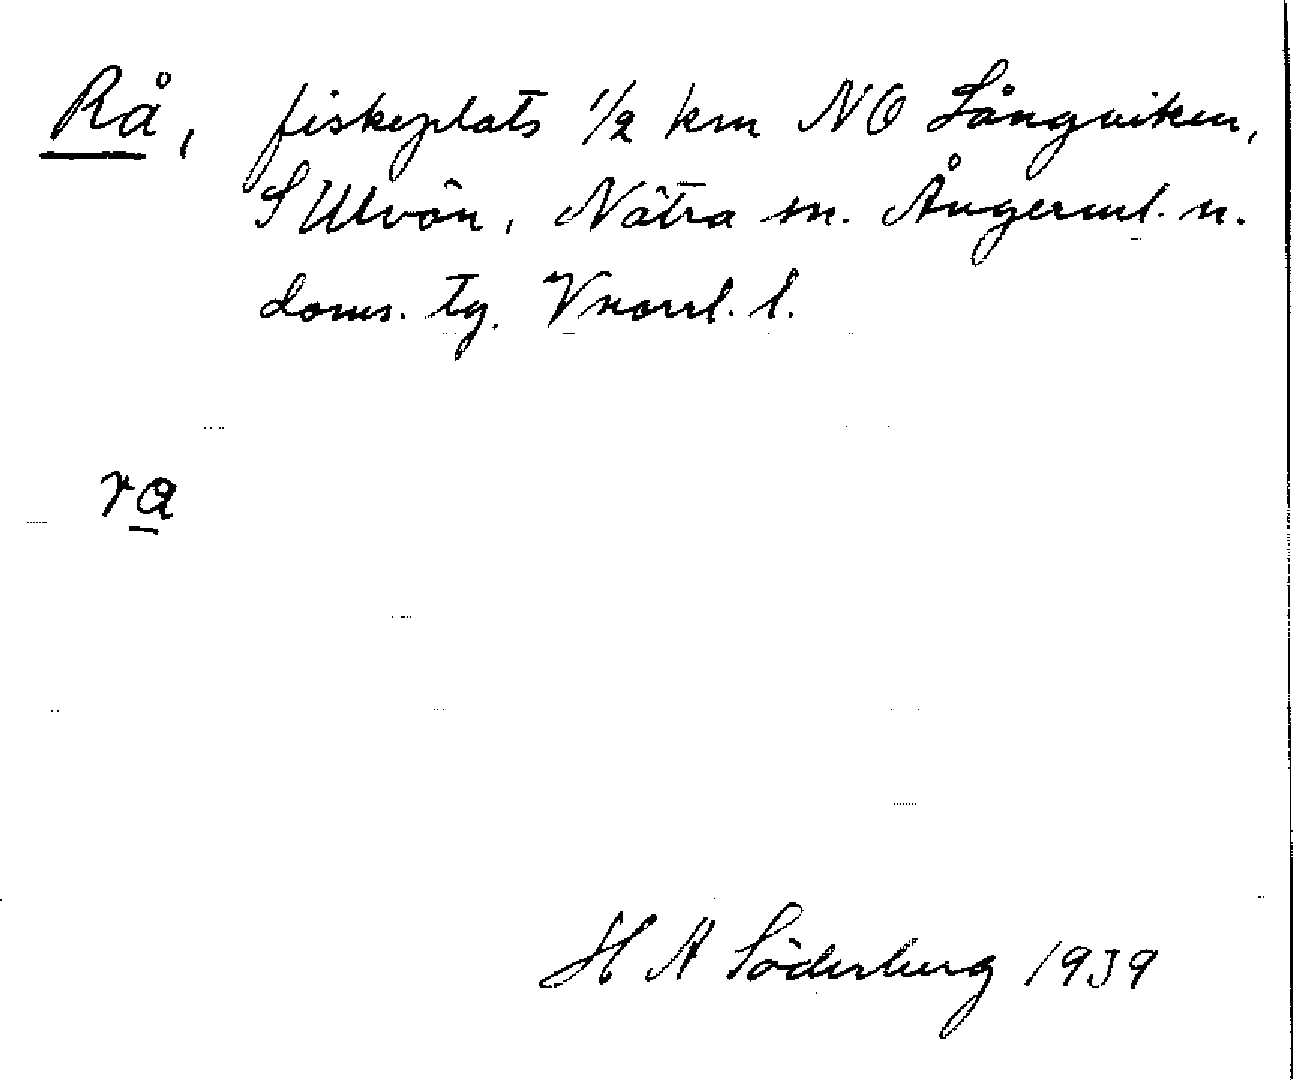 Rå, fiskeplats 1/2 km NO Långviken,
S Ulvön, Nätra sn. Ångerml. n.
doms. tg. Vnorrl. l.
ra
H A Söderberg 1939